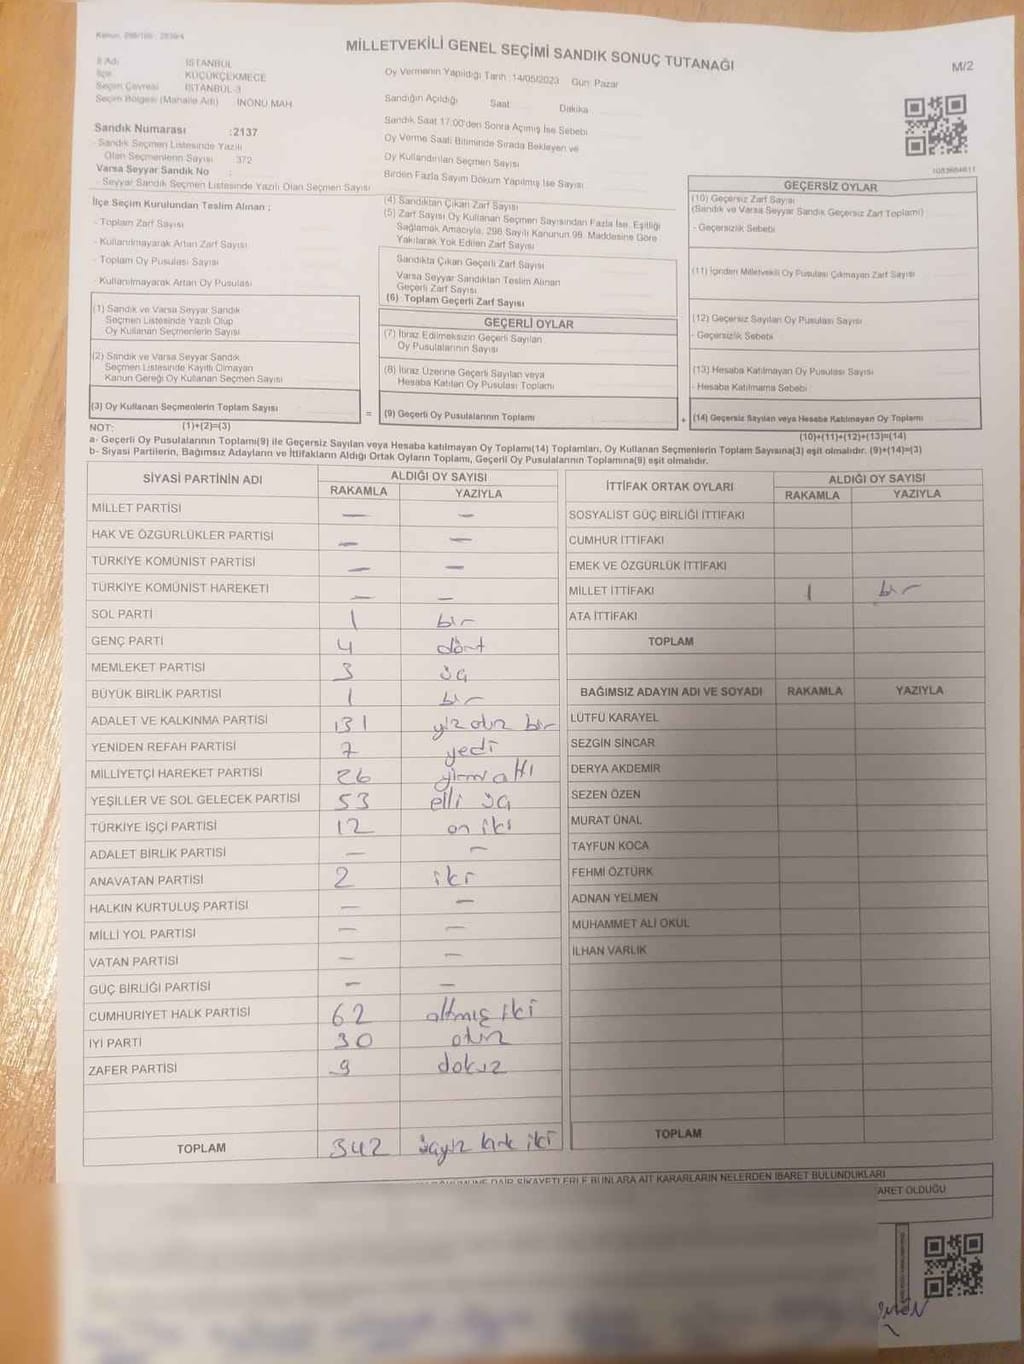 MİLLETVEKİLİ GENEL SEÇİMİ SANDIK SONUÇ TUTANAĞI
M/2
İl Adı İSTANBUL
İlçe KÜÇÜKÇEKMECE
Seçim Çevresi İSTANBUL-3
Seçim Bölgesi (Mahalle Adı) İNÖNÜ MAH.
Oy Vermenin Yapıldığı Tarih :14/05/2023 Gün: Pazar
Sandığın Açıldığı Saat Dakika
Sandık Saat 17:00'den Sonra Açılmış İse Sebebi
Oy Verme Saati Bitiminde Sırada Bekleyen ve
Oy Kullandırılan Seçmen Sayısı
Birden Fazla Sayım Döküm Yapılmış İse Sayısı
Sandık Numarası :2137
- Sandık Seçmen Listesinde Yazılı
Olan Seçmenlerin Sayısı : 372
Varsa Seyyar Sandık No :
- Seyyar Sandık Seçmen Listesinde Yazılı Olan Seçmen Sayısı
İlçe Seçim Kurulundan Teslim Alınan ;
- Toplam Zarf Sayısı
- Kullanılmayarak Artan Zarf Sayısı
- Toplam Oy Pusulası Sayısı
- Kullanılmayarak Artan Oy Pusulası
(1) Sandık ve Varsa Seyyar Sandık
Seçmen Listesinde Yazılı Olup
Oy Kullanan Seçmenlerin Sayısı
(2) Sandık ve Varsa Seyyar Sandık
Seçmen Listesinde Kayıtlı Olmayan
Kanun Gereği Oy Kullanan Seçmen Sayısı
(3) Oy Kullanan Seçmenlerin Toplam Sayısı
(4) Sandıktan Çıkan Zarf Sayısı
(5) Zarf Sayısı Oy Kullanan Seçmen Sayısından Fazla İse, Eşitliği
Sağlamak Amacıyla, 298 Sayılı Kanunun 98. Maddesine Göre
Yakılarak Yok Edilen Zarf Sayısı
Sandıkta Çıkan Geçerli Zarf Sayısı
Varsa Seyyar Sandıktan Teslim Alınan
Geçerli Zarf Sayısı
(6) Toplam Geçerli Zarf Sayısı
GEÇERLİ OYLAR
(7) İtiraz Edilmeksizin Geçerli Sayılan
Oy Pusulalarının Sayısı
(8) İtiraz Üzerine Geçerli Sayılan veya
Hesaba Katılan Oy Pusulası Toplamı
= (9) Geçerli Oy Pusulalarının Toplamı +
GEÇERSİZ OYLAR
(10) Geçersiz Zarf Sayısı
(Sandık ve Varsa Seyyar Sandık Geçersiz Zarf Toplamı)
- Geçersizlik Sebebi
(11) İçinden Milletvekili Oy Pusulası Çıkmayan Zarf Sayısı
(12) Geçersiz Sayılan Oy Pusulası Sayısı
- Geçersizlik Sebebi
(13) Hesaba Katılmayan Oy Pusulası Sayısı
- Hesaba Katılmama Sebebi
(14) Geçersiz Sayılan veya Hesaba Katılmayan Oy Toplamı
NOT: (1)+(2)=(3)
(10)+(11)+(12)+(13)=(14)
a- Geçerli Oy Pusulalarının Toplamı(9) ile Geçersiz Sayılan veya Hesaba katılmayan Oy Toplamı(14) Toplamları, Oy Kullanan Seçmenlerin Toplam Sayısına(3) eşit olmalıdır. (9)+(14)=(3)
b- Siyasi Partilerin, Bağımsız Adayların ve İttifakların Aldığı Ortak Oyların Toplamı, Geçerli Oy Pusulalarının Toplamına(9) eşit olmalıdır.
SİYASİ PARTİNİN ADI ALDIĞI OY SAYISI
RAKAMLA YAZIYLA
MİLLET PARTİSİ — —
HAK VE ÖZGÜRLÜKLER PARTİSİ — —
TÜRKİYE KOMÜNİST PARTİSİ — —
TÜRKİYE KOMÜNİST HAREKETİ — —
SOL PARTİ 1 bir
GENÇ PARTİ 4 dört
MEMLEKET PARTİSİ 3 üç
BÜYÜK BİRLİK PARTİSİ 1 bir
ADALET VE KALKINMA PARTİSİ 131 yüz otuz bir
YENİDEN REFAH PARTİSİ 7 yedi
MİLLİYETÇİ HAREKET PARTİSİ 26 yirmi altı
YEŞİLLER VE SOL GELECEK PARTİSİ 53 elli üç
TÜRKİYE İŞÇİ PARTİSİ 12 on iki
ADALET BİRLİK PARTİSİ — —
ANAVATAN PARTİSİ 2 iki
HALKIN KURTULUŞ PARTİSİ — —
MİLLİ YOL PARTİSİ — —
VATAN PARTİSİ — —
GÜÇ BİRLİĞİ PARTİSİ — —
CUMHURİYET HALK PARTİSİ 62 altmış iki
İYİ PARTİ 30 otuz
ZAFER PARTİSİ 9 dokuz
TOPLAM 342 üçyüz kırk iki
İTTİFAK ORTAK OYLARI ALDIĞI OY SAYISI
RAKAMLA YAZIYLA
SOSYALİST GÜÇ BİRLİĞİ İTTİFAKI
CUMHUR İTTİFAKI
EMEK VE ÖZGÜRLÜK İTTİFAKI
MİLLET İTTİFAKI 1 bir
ATA İTTİFAKI
TOPLAM
BAĞIMSIZ ADAYIN ADI VE SOYADI RAKAMLA YAZIYLA
LÜTFÜ KARAYEL
SEZGİN SİNCAR
DERYA AKDEMİR
SEZEN ÖZEN
MURAT ÜNAL
TAYFUN KOCA
FEHMİ ÖZTÜRK
ADNAN YELMEN
MUHAMMET ALİ OKUL
İLHAN VARLIK
TOPLAM
DAİR ŞİKAYETLERLE BUNLARA AİT KARARLARIN NELERDEN İBARET BULUNDUKLARI
ARET OLDUĞU